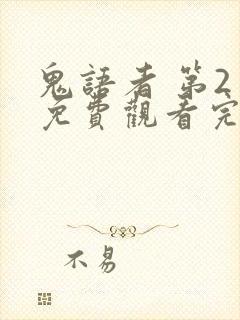 鬼語者 第2
免費觀看完
不易